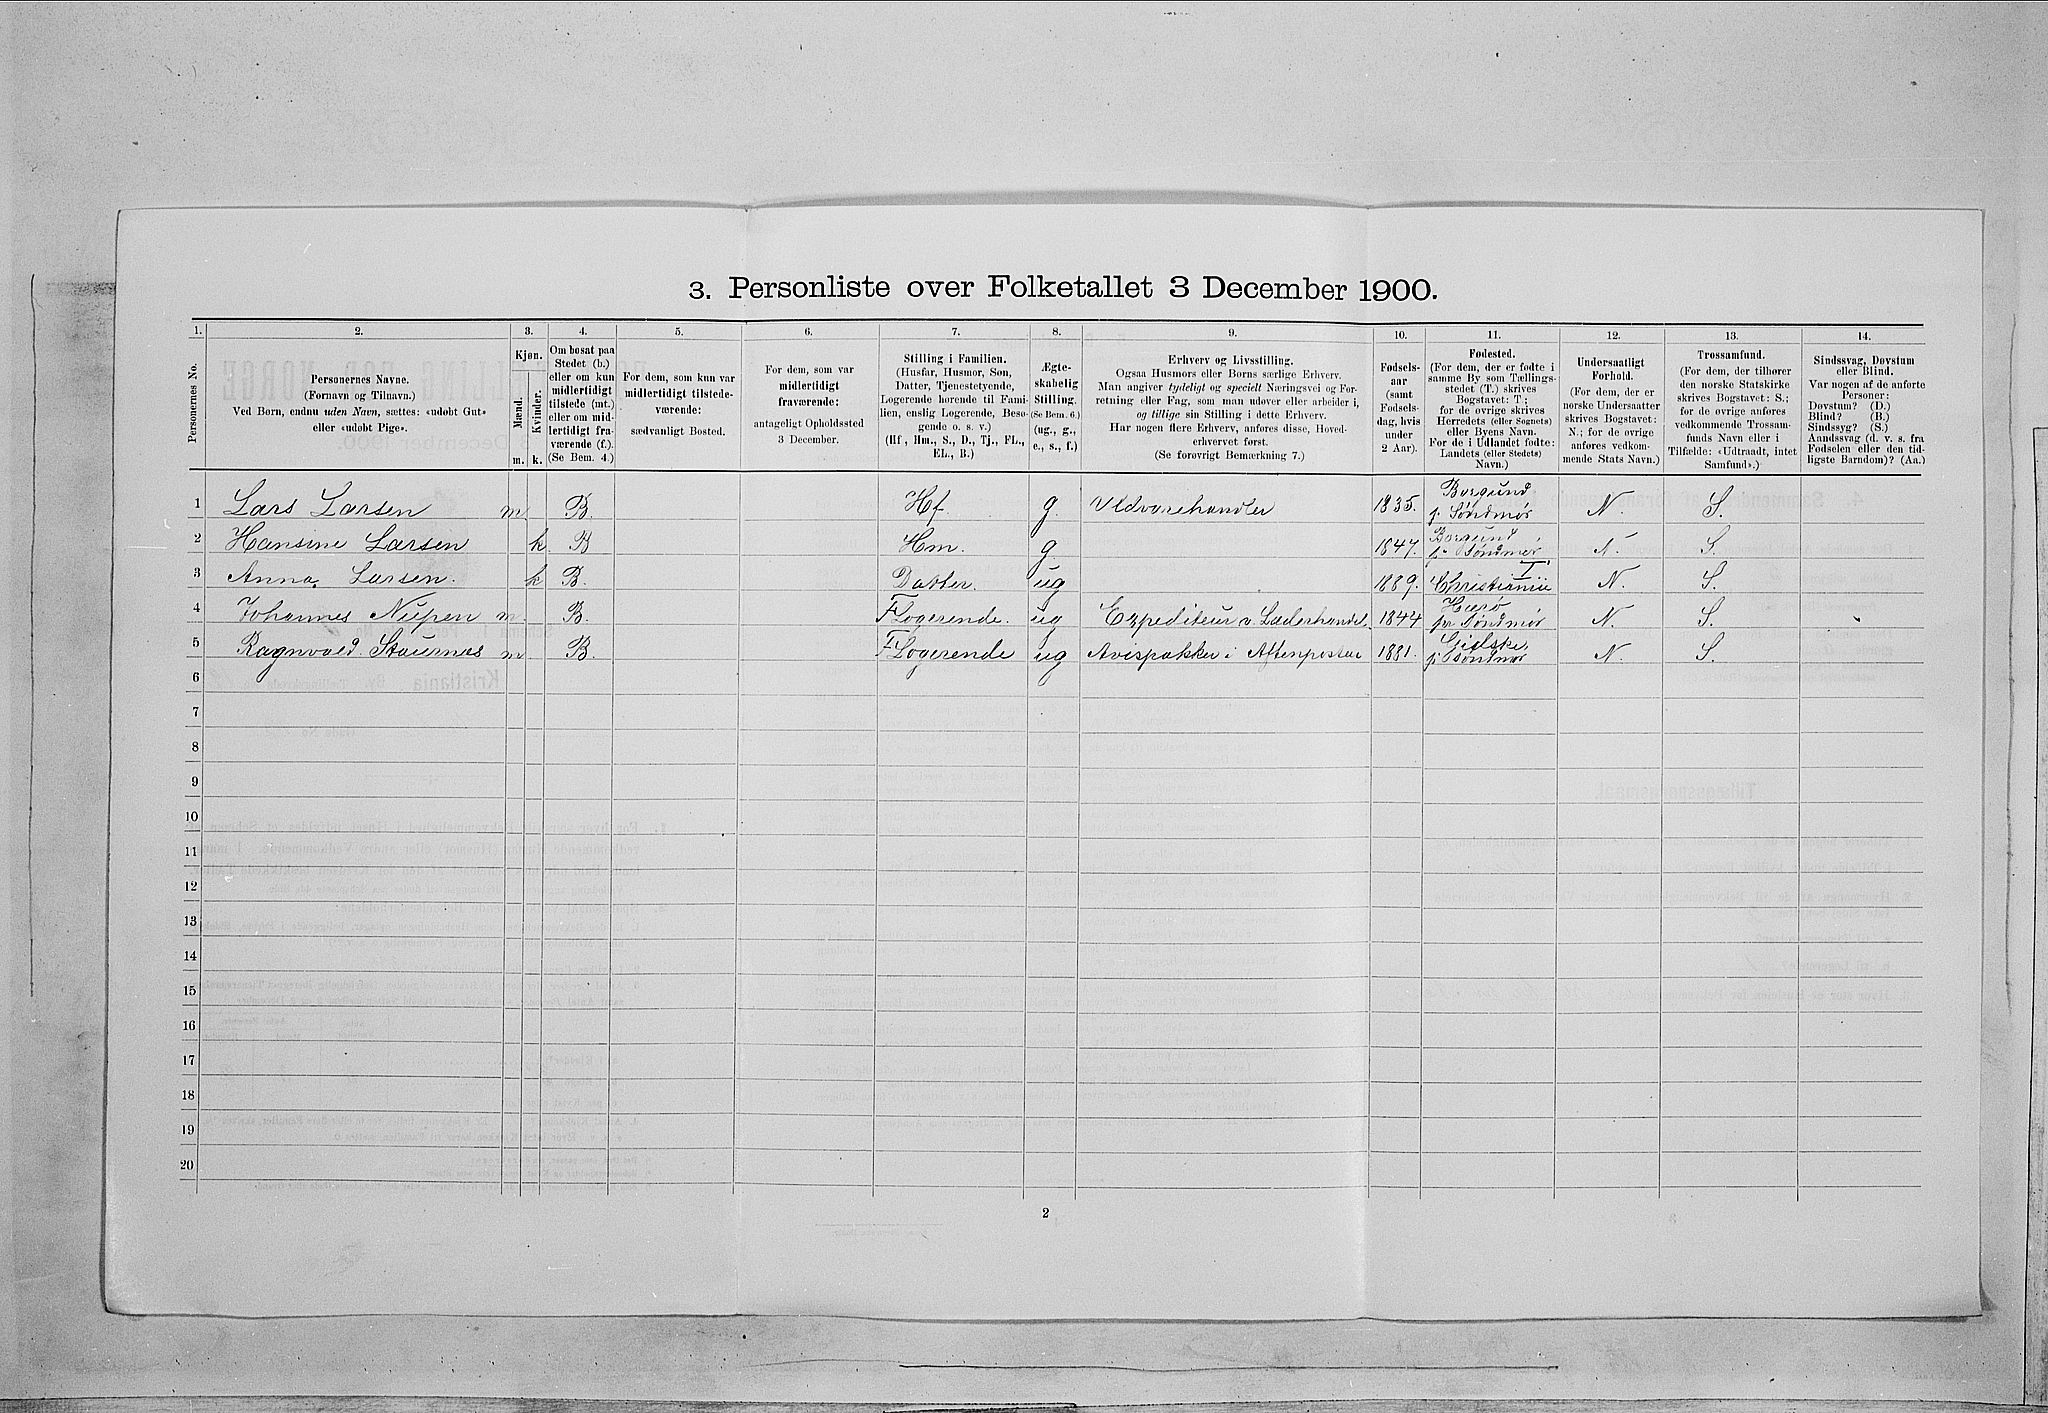 3. Personliste over Folketallet 3 December 1900.
1. 2. 3. 4. 5. 6. 7. 8. 9. 10. 11. 12. 13. 14.
Personernes No.
Personernes Navne.
(Fornavn og Tilnavn.)
Ved Børn, endnu uden Navn, sættes: «udøbt Gut»
eller «udøbt Pige».
Kjøn.
Mænd.
Kvinder.
m. k.
Om bosat paa
Stedet (b.)
eller om kun
midlertidigt
tilstede (mt.)
eller om mid-
lertidigt fra-
værende (f.).
(Se Bem. 4.)
For dem, som kun var
midlertidigt tilstede-
værende:
sædvanligt Bosted.
For dem, som var
midlertidigt
fraværende:
antageligt Opholdssted
3 December.
Stilling i Familien.
(Husfar, Husmor, Søn,
Datter, Tjenestetyende,
Logerende hørende til Fami-
lien, enslig Logerende, Besø-
gende o. s. v.)
(Hf, Hm., S., D., Tj., FL.,
EL., B.)
Ægte-
skabelig
Stilling.
(Se Bem. 6.)
(ug., g.,
e., s., f.)
Erhverv og Livsstilling.
Ogsaa Husmors eller Børns særlige Erhverv.
Man angiver tydeligt og specielt Næringsvei og For-
retning eller Fag, som man udøver eller arbeider i,
og tillige sin Stilling i dette Erhverv.
Har nogen flere Erhverv, anføres disse, Hoved-
erhvervet først.
(Se forøvrigt Bemærkning 7.)
Fødsels-
aar
(samt
Fødsels-
dag, hvis
under
2 Aar).
Fødested.
(For dem, der er fødte i
samme By som Tællings-
stedet (T.) skrives
Bogstavet: T.;
for de øvrige skrives
Herredets (eller Sognets)
eller Byens Navn.
For de i Udlandet fødte:
Landets (eller Stedets)
Navn.)
Undersaatligt
Forhold.
(For dem, der er
norske Undersaatter
skrives Bogstavet:
N.; for de øvrige
anføres vedkom-
mende Stats Navn.)
Trossamfund.
(For dem, der tilhører
den norske Statskirke
skrives Bogstavet: S.;
for de øvrige anføres
vedkommende Trossam-
funds Navn eller i
Tilfælde: «Udtraadt, intet
Samfund».)
Sindssvag, Døvstum
eller Blind.
Var nogen af de anførte
Personer:
Døvstum? (D.)
Blind? (B.)
Sindssyg? (S.)
Aandssvag (d. v. s. fra
Fødselen eller den tid-
ligste Barndom)? (Aa.)
1 Lars Larsen m. B. Hf g. Uldvarehandler 1835. Borgund p. Søndmør N. S.
2 Hansine Larsen k. B Hm. g. 1847. Borgund p. Søndmør N. S.
3 Anna Larsen. k B. Datter. ug 1889. Christiania T. N. S.
4 Johannes Nupen m. B. F Logerende. ug Expediteur v. Læderhandel. 1844 Herø p. Søndmør N. S.
5 Ragnvald Staurnes m B. F Logerende ug Avispakker i Aftenposten 1881. Gjidske, p. Søndmør N. S.
6
7
8
9
10
11
12
13
14
15
16
17
18
19
20
2